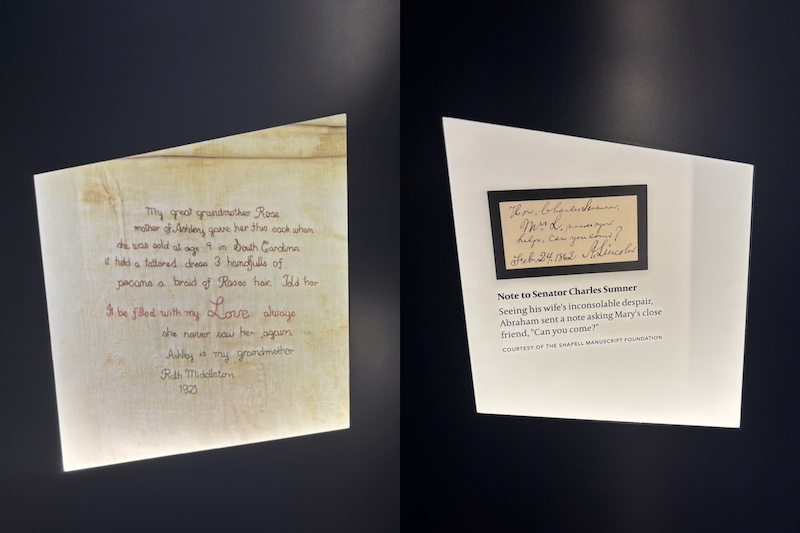 My great grandmother Rose
mother of Ashley gave her this sack when
she was sold at age 9 in South Carolina
it held a tattered dress 3 handfulls of
pecans a braid of Roses hair. Told her
It be filled with my Love always
she never saw her again
Ashley is my grandmother
Ruth Middleton
1921
Hon. Charles Sumner.
Mrs L. needs your
help. Can you come?
Feb. 24. 1862 A. Lincoln
Note to Senator Charles Sumner
Seeing his wife's inconsolable despair,
Abraham sent a note asking Mary's close
friend, "Can you come?"
COURTESY OF THE SHAPELL MANUSCRIPT FOUNDATION